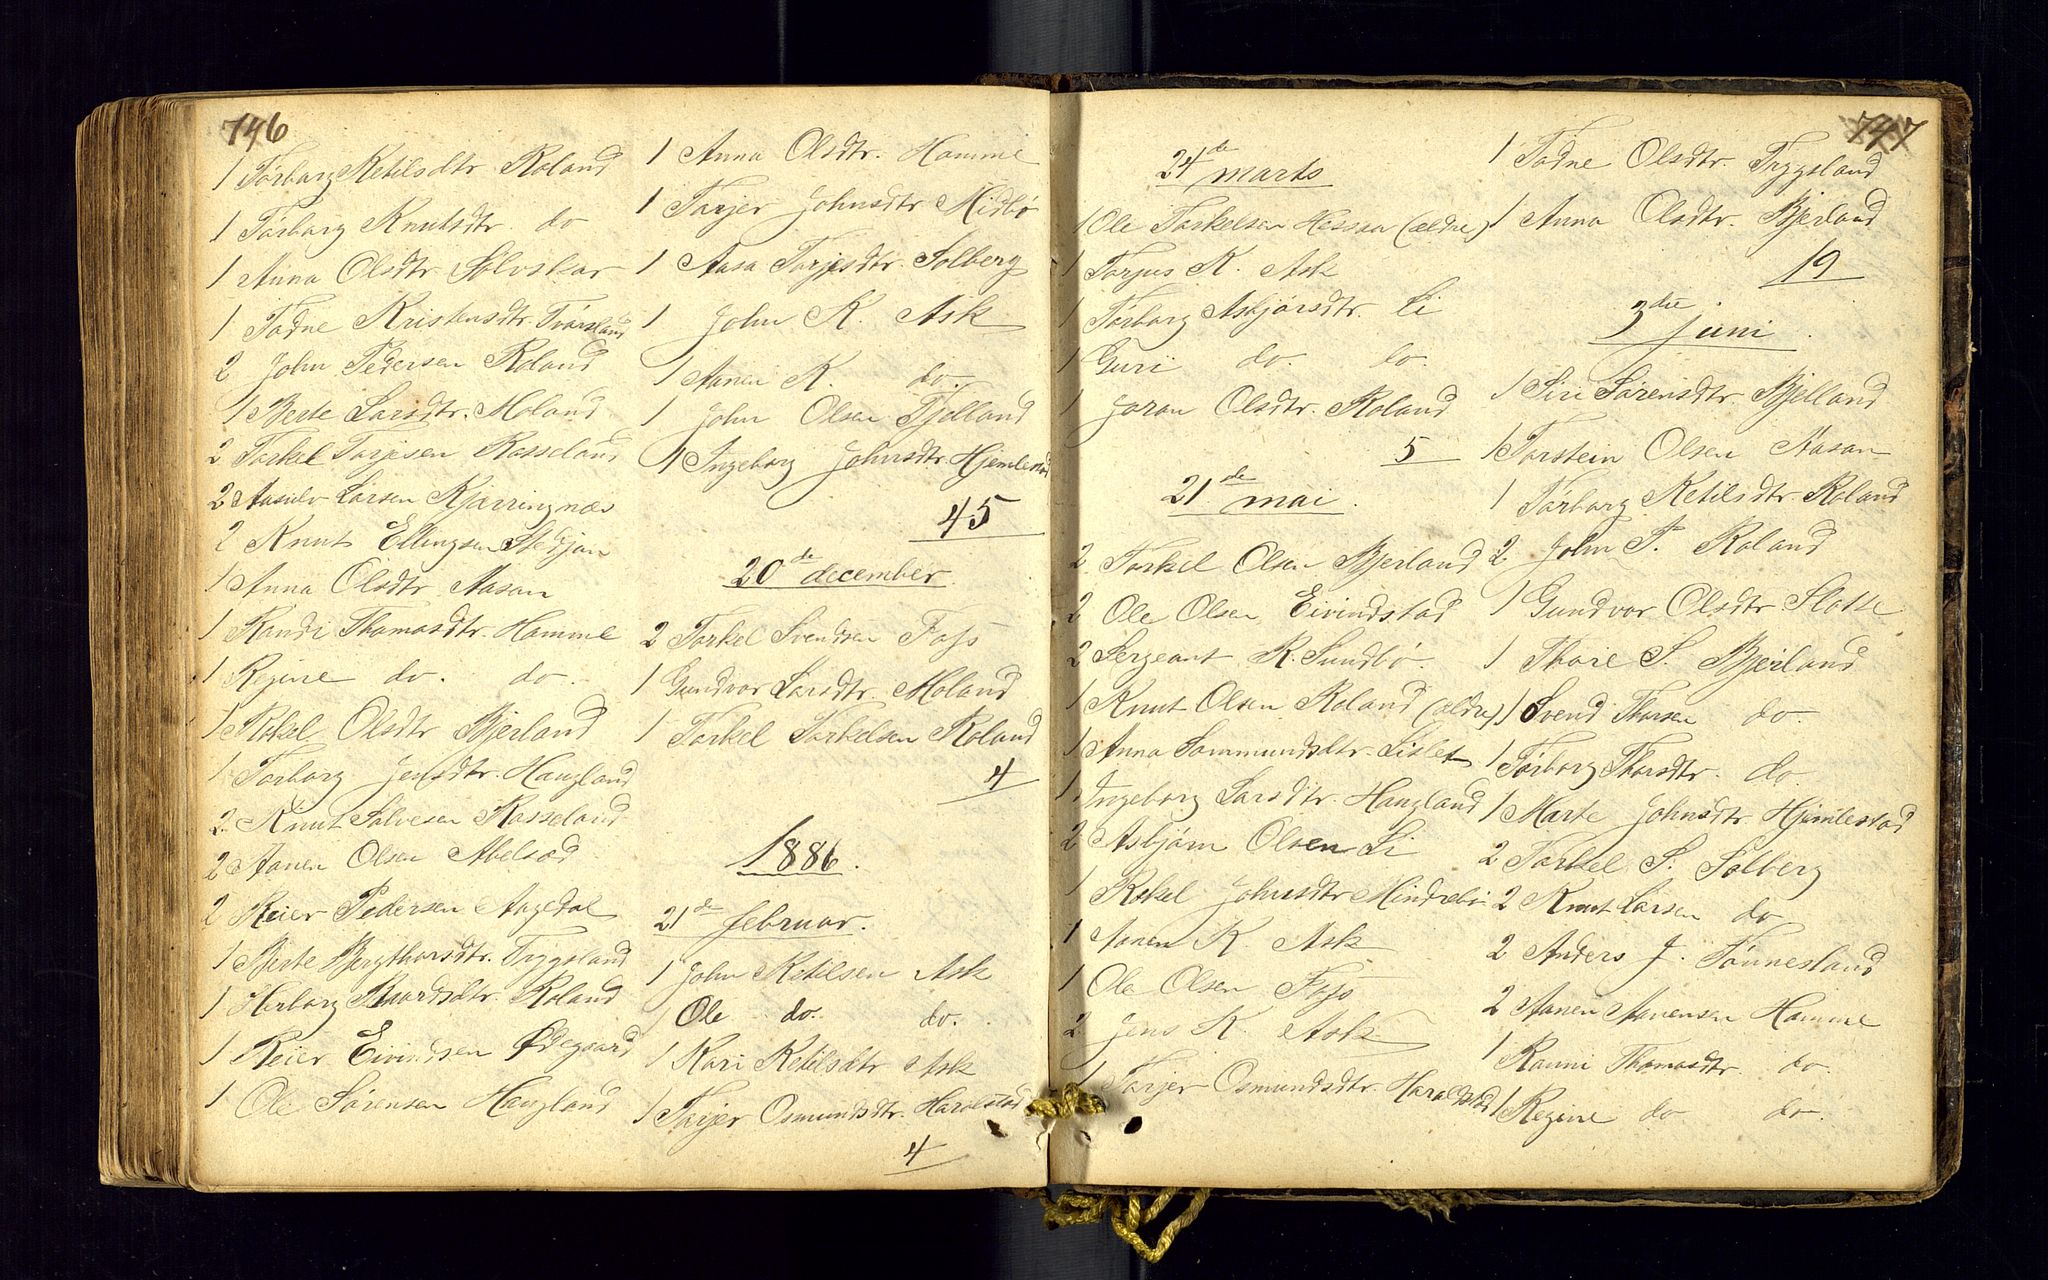 746
1 Torborg Ketilsdtr Roland
1 Torborg Knutsdtr. do
1 Anna Olsdtr Sølvskar
1 Tadne Kristensdtr. Tvørsland
2 John Pedersen Roland
1 Berte Larsdtr. Moland
2 Torkel Torjesen Rosseland
2 Aasulv Larsen Kjørringnæs
2 Knut Ellingsen Stedjan
1 Anna Olsdtr Aasan
1 Randi Thomasdtr. Homme
1 Regine do. do.
1 Rakel Olsdtr Bjerland
1 Torborg Jensdtr. Haugland
2 Knut Salvesen Rosseland
2 Aanen Olsen Abelsød
2 Reier Pedersen Aagedal
1 Berte Bergthorsdtr. Trygsland
1 Herborg Baardsdtr. Roland
1 Reier Eivindsen Ødegaard
1 Ole Sørensen Haugland
1 Anna Olsdtr. Homme
1 Tarjer Johnsdtr Midbø
1 Aasa Torjesdtr. Solberg
1 John K. Ask
1 Aanen K. do.
1 John Olsen Fjelland
1 Ingeborg Johnsdtr. Hjemlestad
45
20de december.
2 Torkel Svendsen Foss
1 Gundvor Larsdtr. Moland
1 Torkel Torkelsen Roland
4
1886.
21de februar.
1 John Ketilsen Ask
1 Ole do. do.
1 Kari Ketilsdtr Ask
1 Tarjer Osmundsdtr. Haralstad
4
747
24de marts
1 Ole Torkelsen Hessaa (ældre)
1 Torjus K. Ask
1 Torborg Asbjørsdtr. Li
1 Guri do. do.
1 Joran Olsdtr. Roland
5
21de mai.
2 Torkel Olsen Bjerland
2 Ole Olsen Eivindstad
2 Sergeant K. Sundbø.
1 Knut Olsen Roland (ældre)
1 Anna Sommundsdtr. Lislet
1 Ingeborg Larsdtr. Haugland
2 Asbjørn Olsen Li
1 Rakel Johnsdtr Mindrebø
1 Aanen K. Ask
1 Ole Olsen Foss
2 Jens K. Ask
1 Tarjer Osmundsdtr. Haraldstad
1 Tadne Olsdtr. Trygsland
1 Anna Olsdtr. Bjerland
19
3die juni.
1 Siri Sørensdtr Bjelland
1 Torstein Olsen Aasan
1 Torborg Ketilsdtr. Roland
2 John P. Roland
1 Gundvor Olsdtr Slotte
1 Thore S. Bjerland
1 Svend Thorsen do.
1 Torborg Thorsdtr. do.
1 Marte Johnsdtr. Hjemlestad
2 Torkel S. Solberg
2 Knut Larsen do
2 Anders J. Tønnesland
2 Aanen Aanensen Homme
1 Ranni Thomasdtr. do.
1 Regine do do.